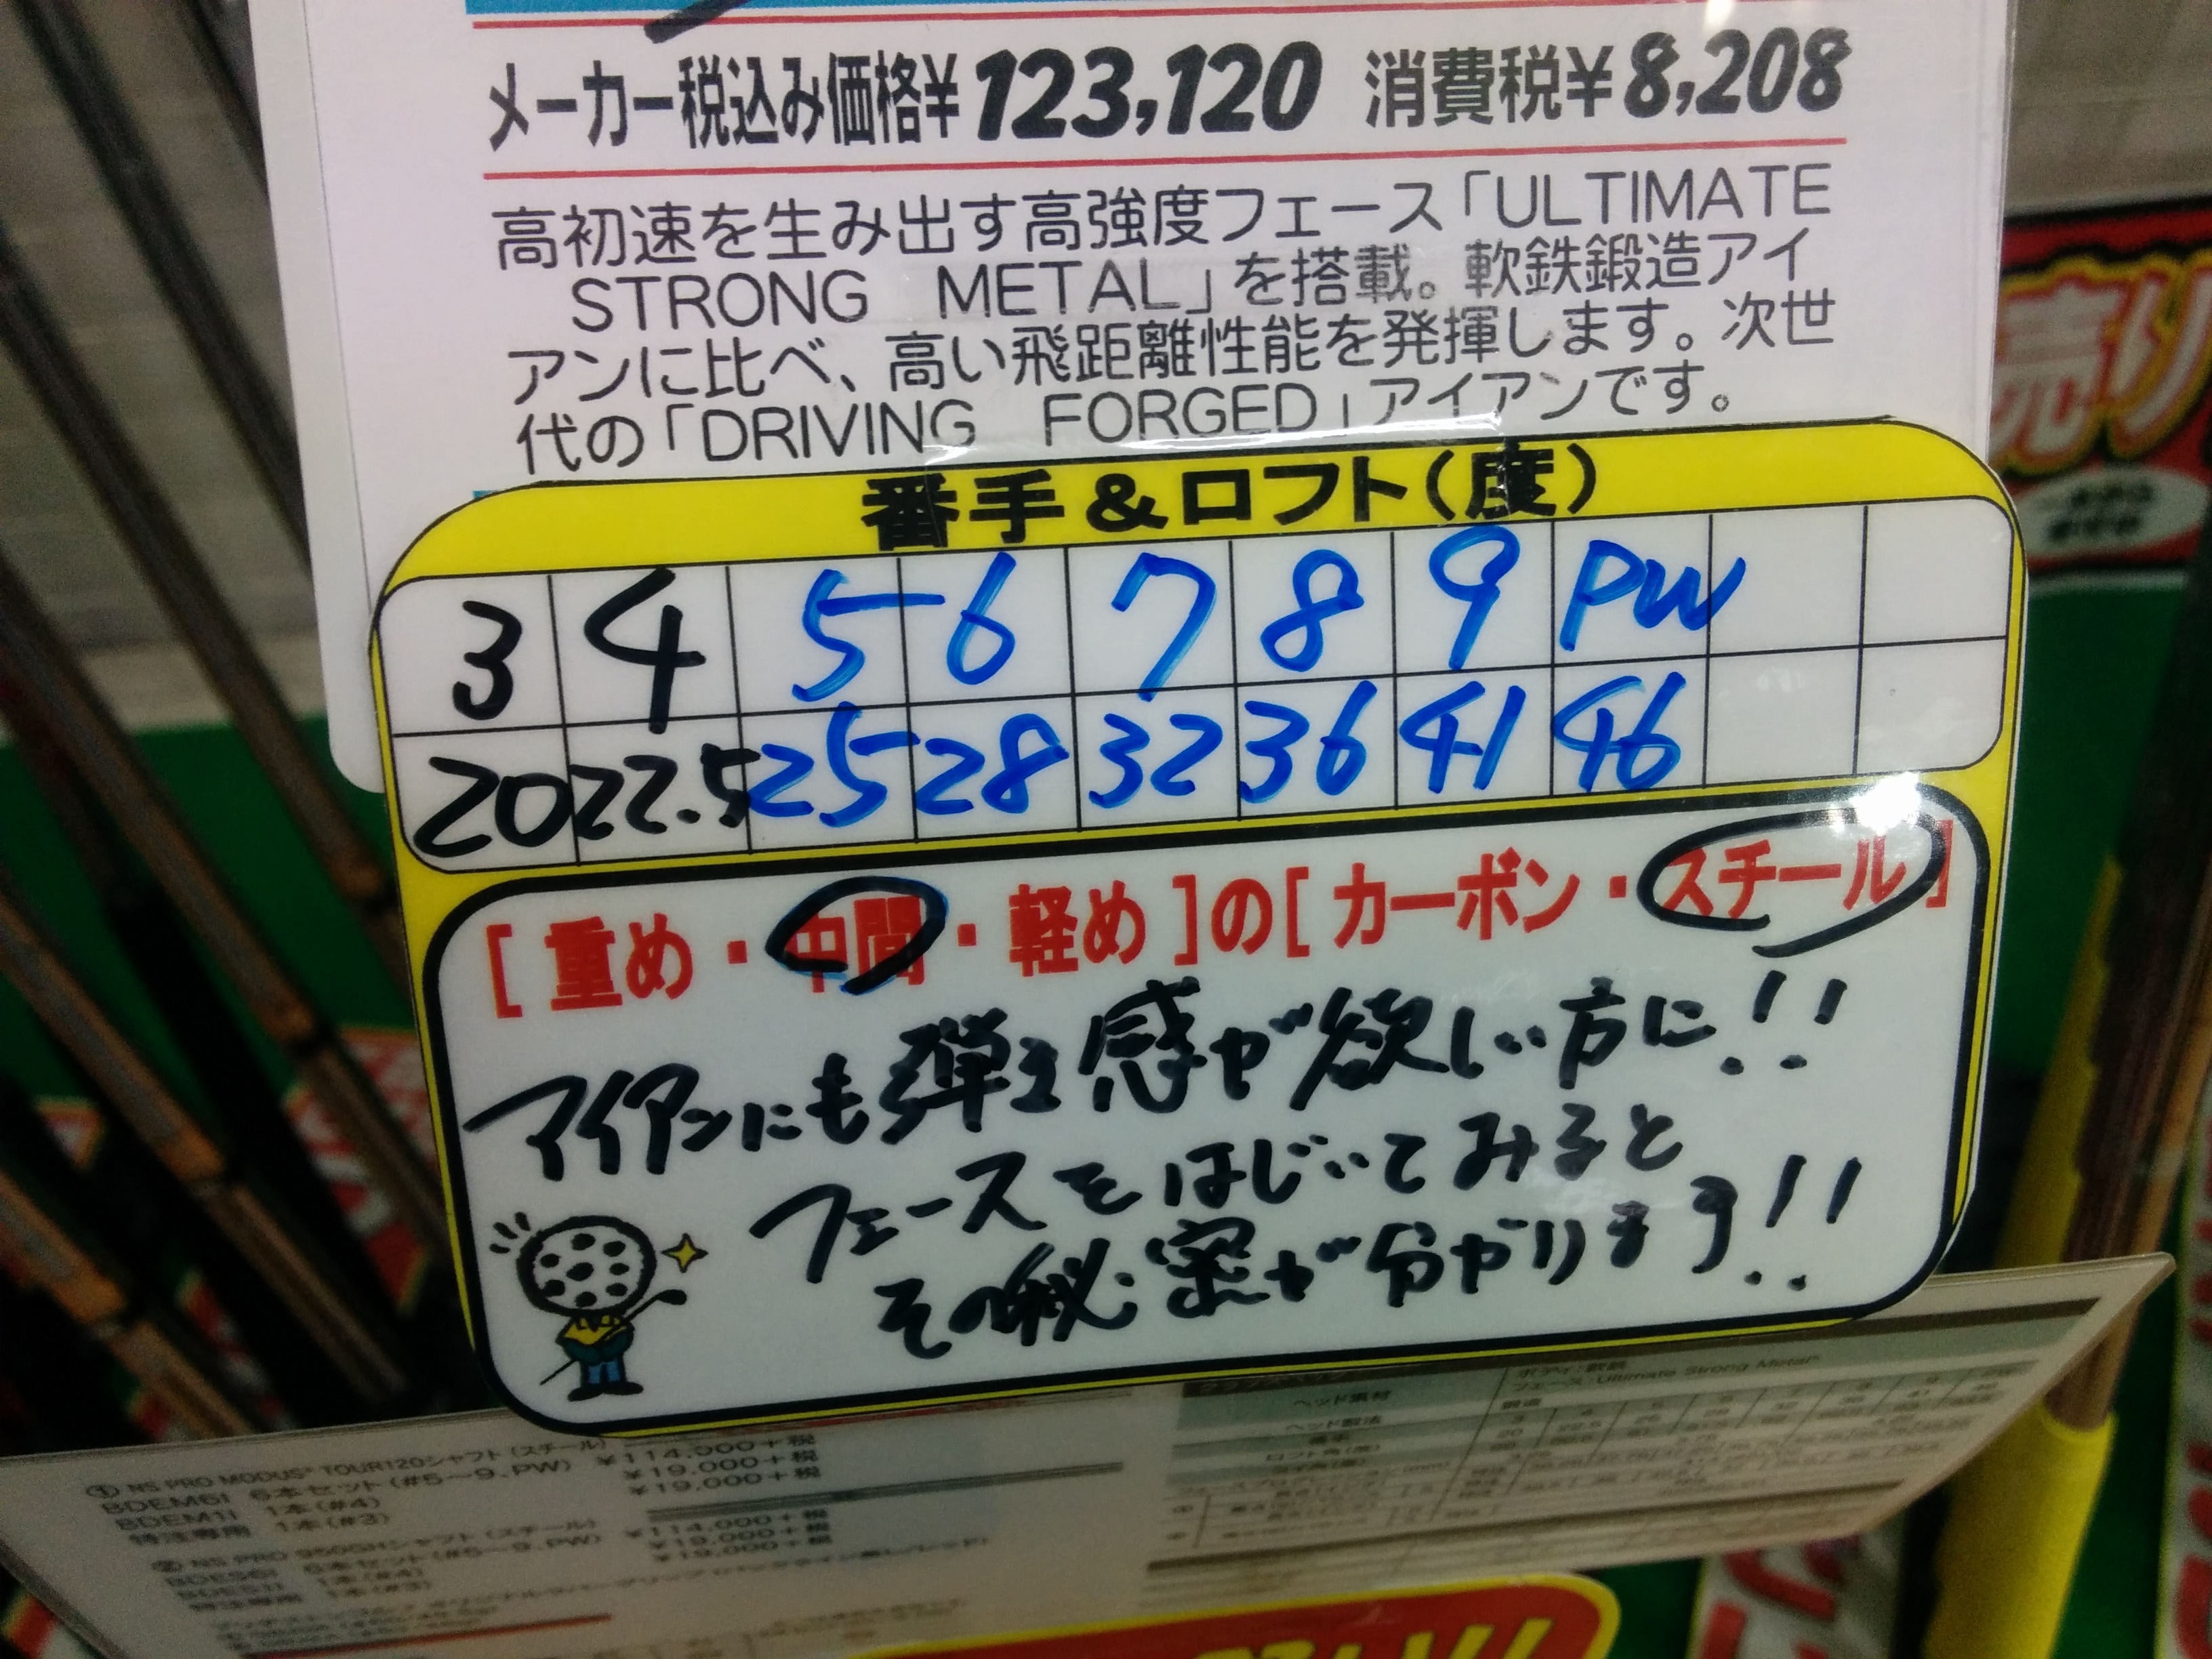 メーカー税込み価格¥123,120 消費税¥8,208
高初速を生み出す高強度フェース「ULTIMATE
STRONG METAL」を搭載。軟鉄鍛造アイ
アンに比べ、高い飛距離性能を発揮します。次世
代の「DRIVING FORGED」アイアンです。
番手&ロフト(度)
3 4 5 6 7 8 9 PW
20 22.5 25 28 32 36 41 46
[重め・中間・軽め]の[カーボン・スチール]
アイアンにも弾き感が欲しい方に!!
フェースをはじいてみると
その秘密が分かります!!
売り
① NS PRO MODUS³ TOUR120シャフト(スチール)
BDEM6I 6本セット(#5〜9.PW) ¥114,000+税
BDEM1I 1本(#4) ¥19,000+税
特注専用 1本(#3) ¥19,000+税
② NS PRO 950GHシャフト(スチール)
BDES6I 6本セット(#5〜9.PW) ¥114,000+税
1本(#4) ¥19,000+税
特注専用 1本(#3) ¥19,000+税
ヘッド素材
フェース:Ultimate Strong Metal
ヘッド製法 鍛造
番手 3 4 5 6 7 8 9